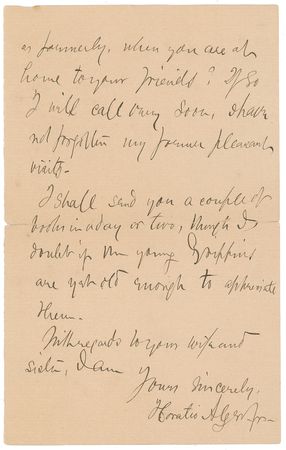 as formerly, when you are at
home to your friends? If so
I will call very soon, I have
not forgotten my former pleasant
visits.
I shall send you a couple of
books in a day or two, though I
doubt if the young
are yet old enough to appreciate
them.
With regards to your wife and
sister, I am
Yours sincerely,
Horatio Alger Jr.